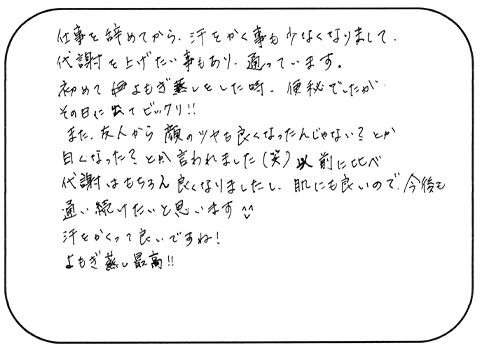 仕事を辞めてから、汗をかく事も少なくなりまして、
代謝を上げたい事もあり、通っています。
初めてよもぎ蒸しをした時、便秘でしたが
その日に出てビックリ!!
また、友人から顔のツヤも良くなったんじゃない?とか
白くなった?とか言われました(笑)以前に比べ
代謝はもちろん良くなりましたし、肌にも良いので、今後も
通い続けたいと思います
汗をかくって良いですね!
よもぎ蒸し最高!!